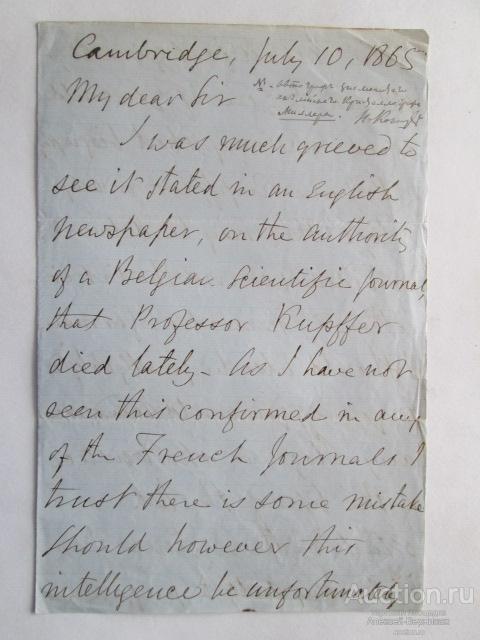 Cambridge, July 10, 1865
My dear Sir
NB. автограф знаменитаго
английскаго Кристаллографа
Миллера. Н. Кокшаров
I was much grieved to
see it stated in an English
newspaper, on the authority
of a Belgian Scientific Journal,
that Professor Kupffer
died lately - As I have not
seen this confirmed in any
of the French Journals I
trust there is some mistake
Should however this
intelligence be unfortunately
Auction.ru
Алексей-Верниган
auction.ru